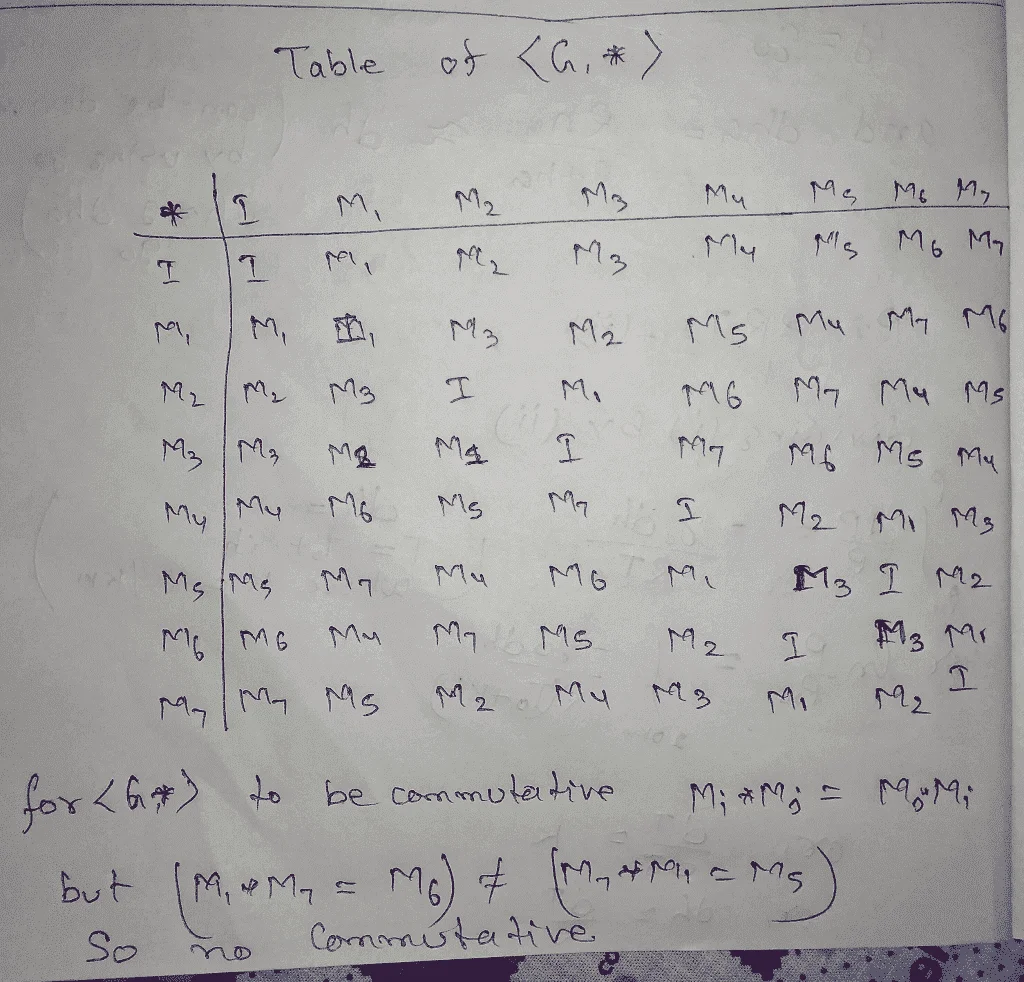 Table of <G,*>
* I M1 M2 M3 M4 M5 M6 M7
I I M1 M2 M3 M4 M5 M6 M7
M1 M1 I M3 M2 M5 M4 M7 M6
M2 M2 M3 I M1 M6 M7 M4 M5
M3 M3 M2 M1 I M7 M6 M5 M4
M4 M4 M6 M5 M7 I M2 M1 M3
M5 M5 M7 M4 M6 M1 M3 I M2
M6 M6 M4 M7 M5 M2 I M3 M1
M7 M7 M5 M2 M4 M3 M1 M2 I
for <G,*> to be commutative Mi * Mj = Mj * Mi
but (M1 * M7 = M6) ≠ (M7 * M1 = M5)
So no Commutative